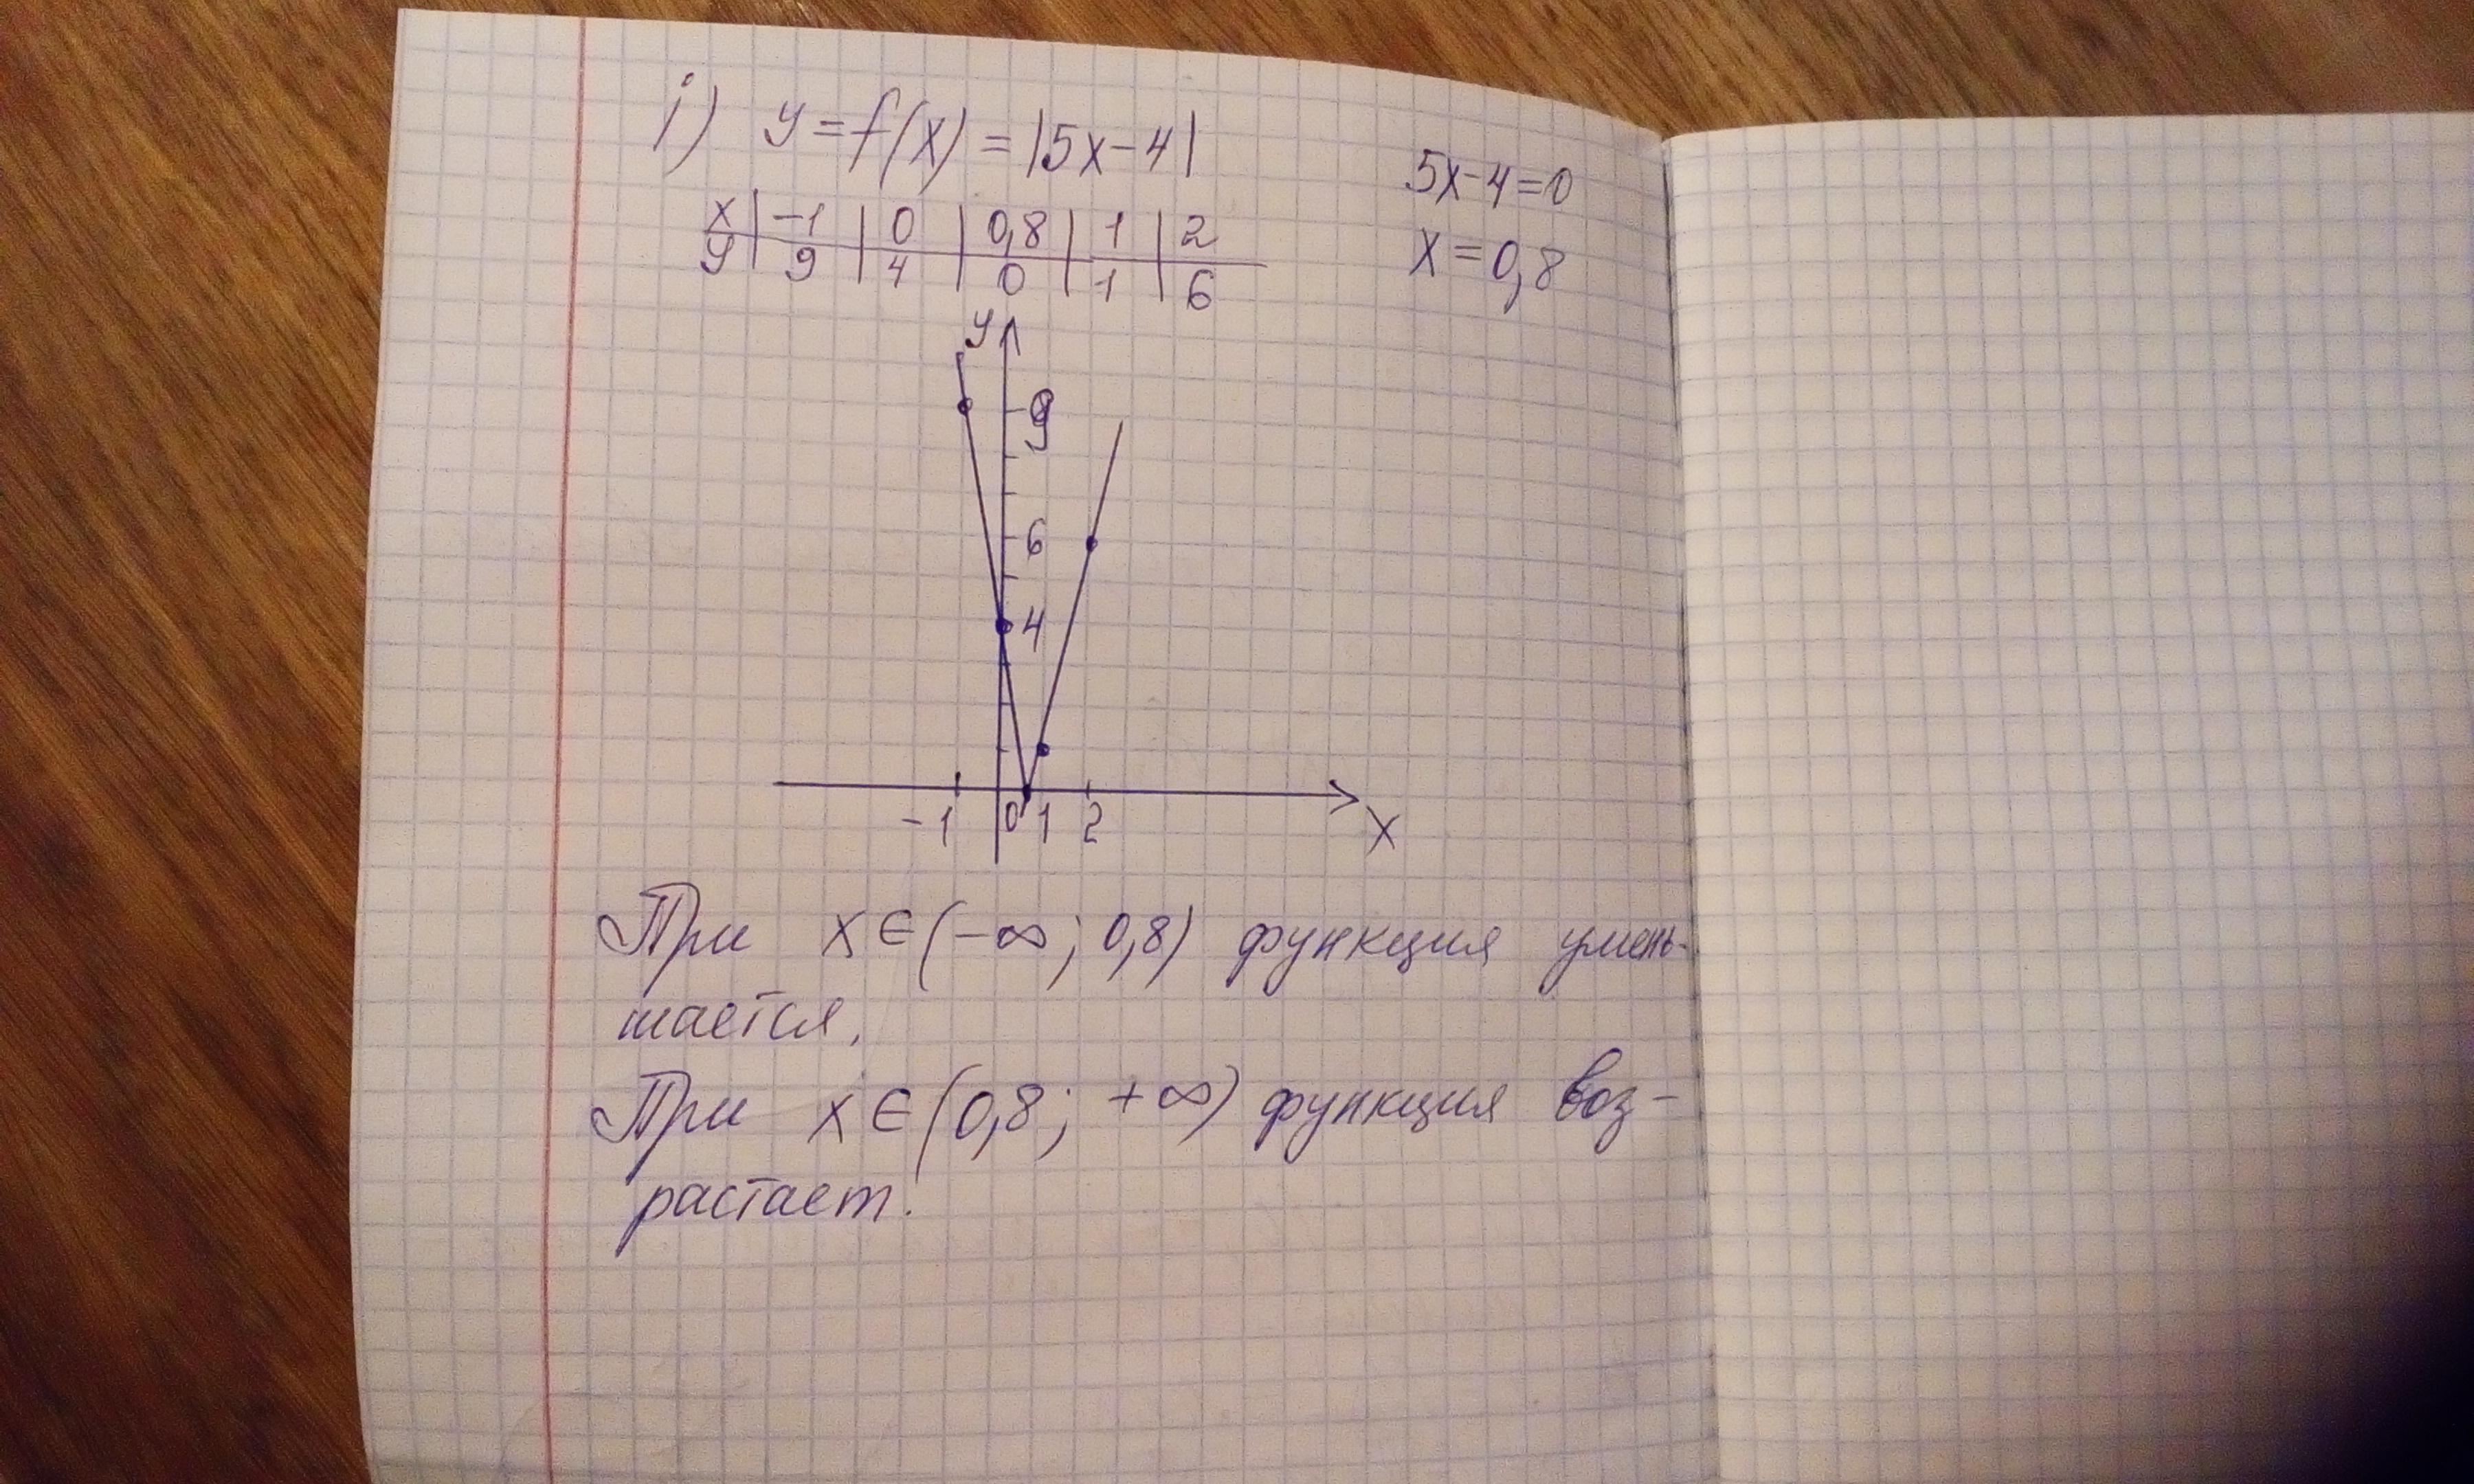 i) y = f(x) = |5x-4|
5x-4=0
x | -1 | 0 | 0,8 | 1 | 2
y | 9 | 4 | 0 | 1 | 6
x = 0,8
y
9
6
4
-1 0 1 2 x
При x∈(-∞; 0,8) функция умень-
шается.
При x∈(0,8; +∞) функция воз-
растает.